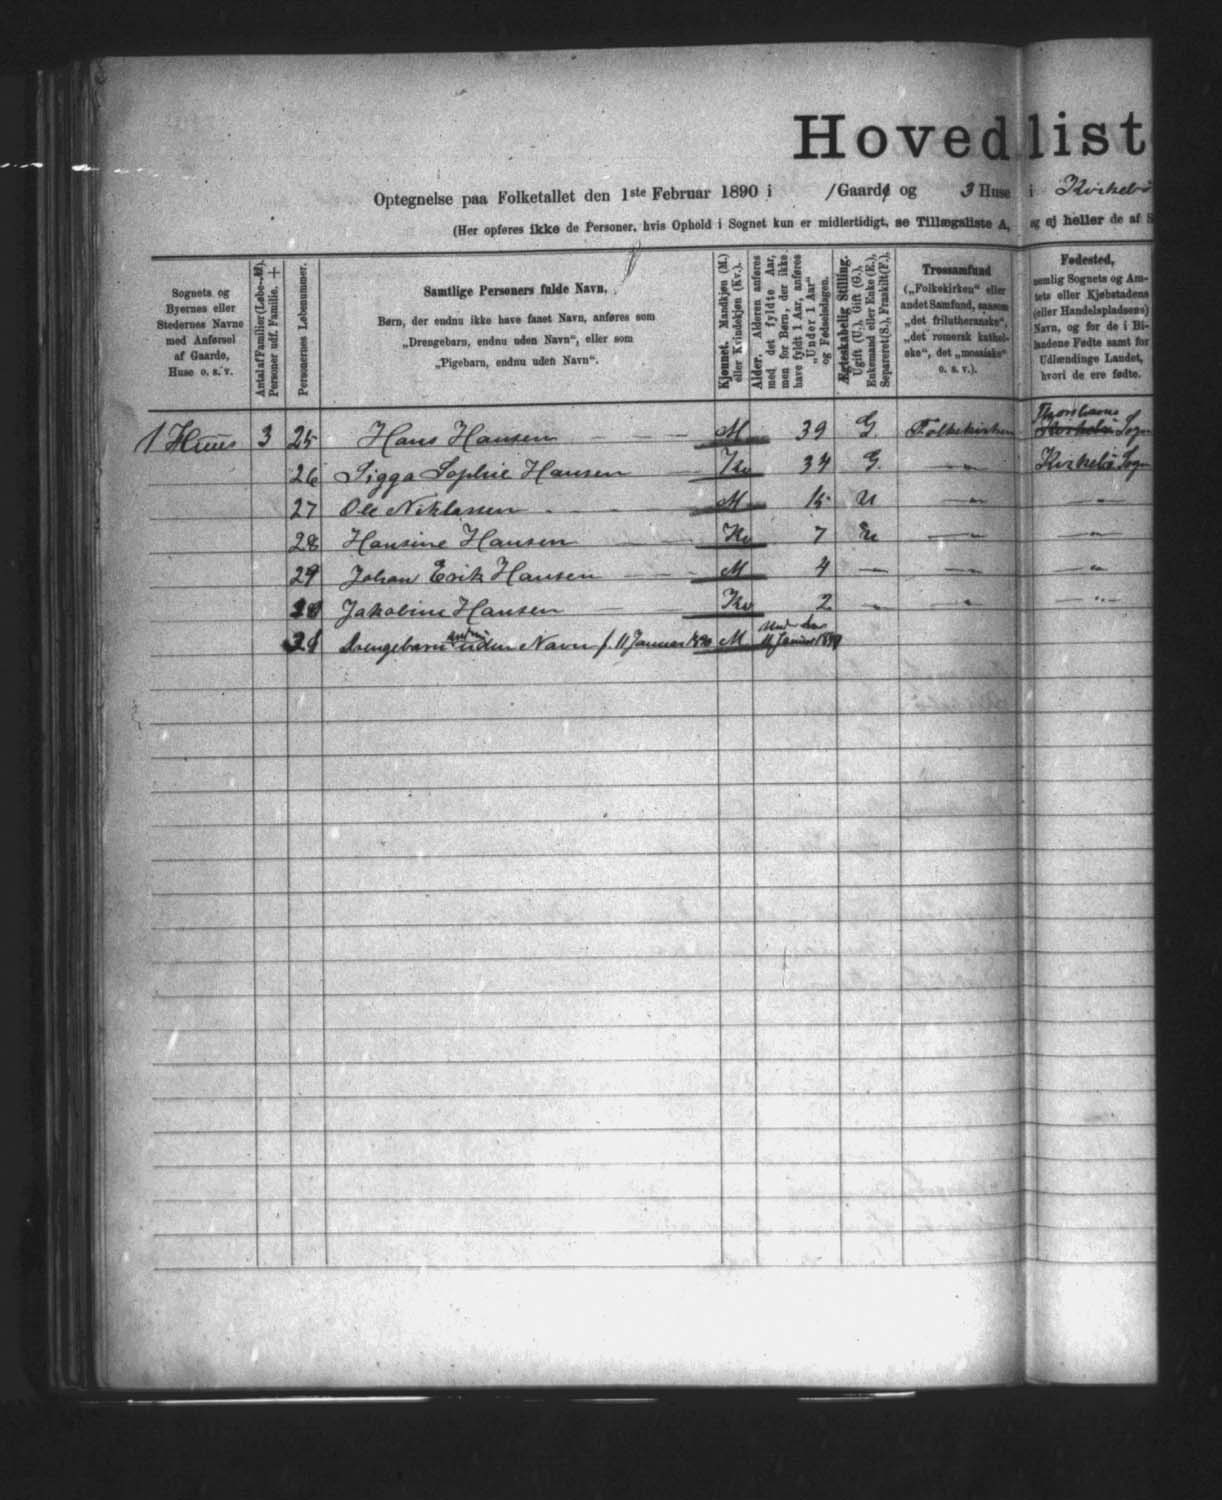 Hovedlist
Optegnelse paa Folketallet den 1ste Februar 1890 i /Gaard og 3 Huse i Kirkebø
(Her opføres ikke de Personer, hvis Ophold i Sognet kun er midlertidigt, se Tillægsliste A, og ej heller de af S
Sognets og Byernes eller Stedernes Navne med Anførsel af Gaarde, Huse o. s. v.
Antal af Familier (Løbe-№). Personer udf. Familie. +
Personernes Løbenummer.
Samtlige Personers fulde Navn.
Børn, der endnu ikke have faaet Navn, anføres som
„Drengebarn, endnu uden Navn“, eller som
„Pigebarn, endnu uden Navn“.
Kjønnet. Mandkjøn (M.) eller Kvindekjøn (Kv.).
Alder. Alderen anføres med det fyldte Aar, men for Børn, der ikke have fyldt 1 Aar, anføres „Under 1 Aar“ og Fødselsdagen.
Ægteskabelig Stilling. Ugift (U.), Gift (G.), Enkemand eller Enke (E.), Separeret (S.), Fraskilt (F.).
Trossamfund
(„Folkekirken“ eller andet Samfund, saasom „det frilutheranske“, „det romersk katholske“, det „mosaiske“ o. s. v.).
Fødested,
nemlig Sognets og Amtets eller Kjøbstadens (eller Handelspladsens) Navn, og for de i Bilandene Fødte samt for Udlændinge Landet, hvori de ere fødte.
1 Huus 3 25 Hans Hansen M 39 G. Folkekirken Thorshavns Sogn
26 Sigga Sophie Hansen Kv 34 G. — Kirkebø Sogn
27 Ole Niklassen M 15 U — —
28 Hansine Hansen Kv 7 U — —
29 Johan Erik Hansen M 4 — — —
Jakobine Hansen Kv 2 — — —
Drengebarn endnu uden Navn f. 11 Januar 1890 M 11 Januar